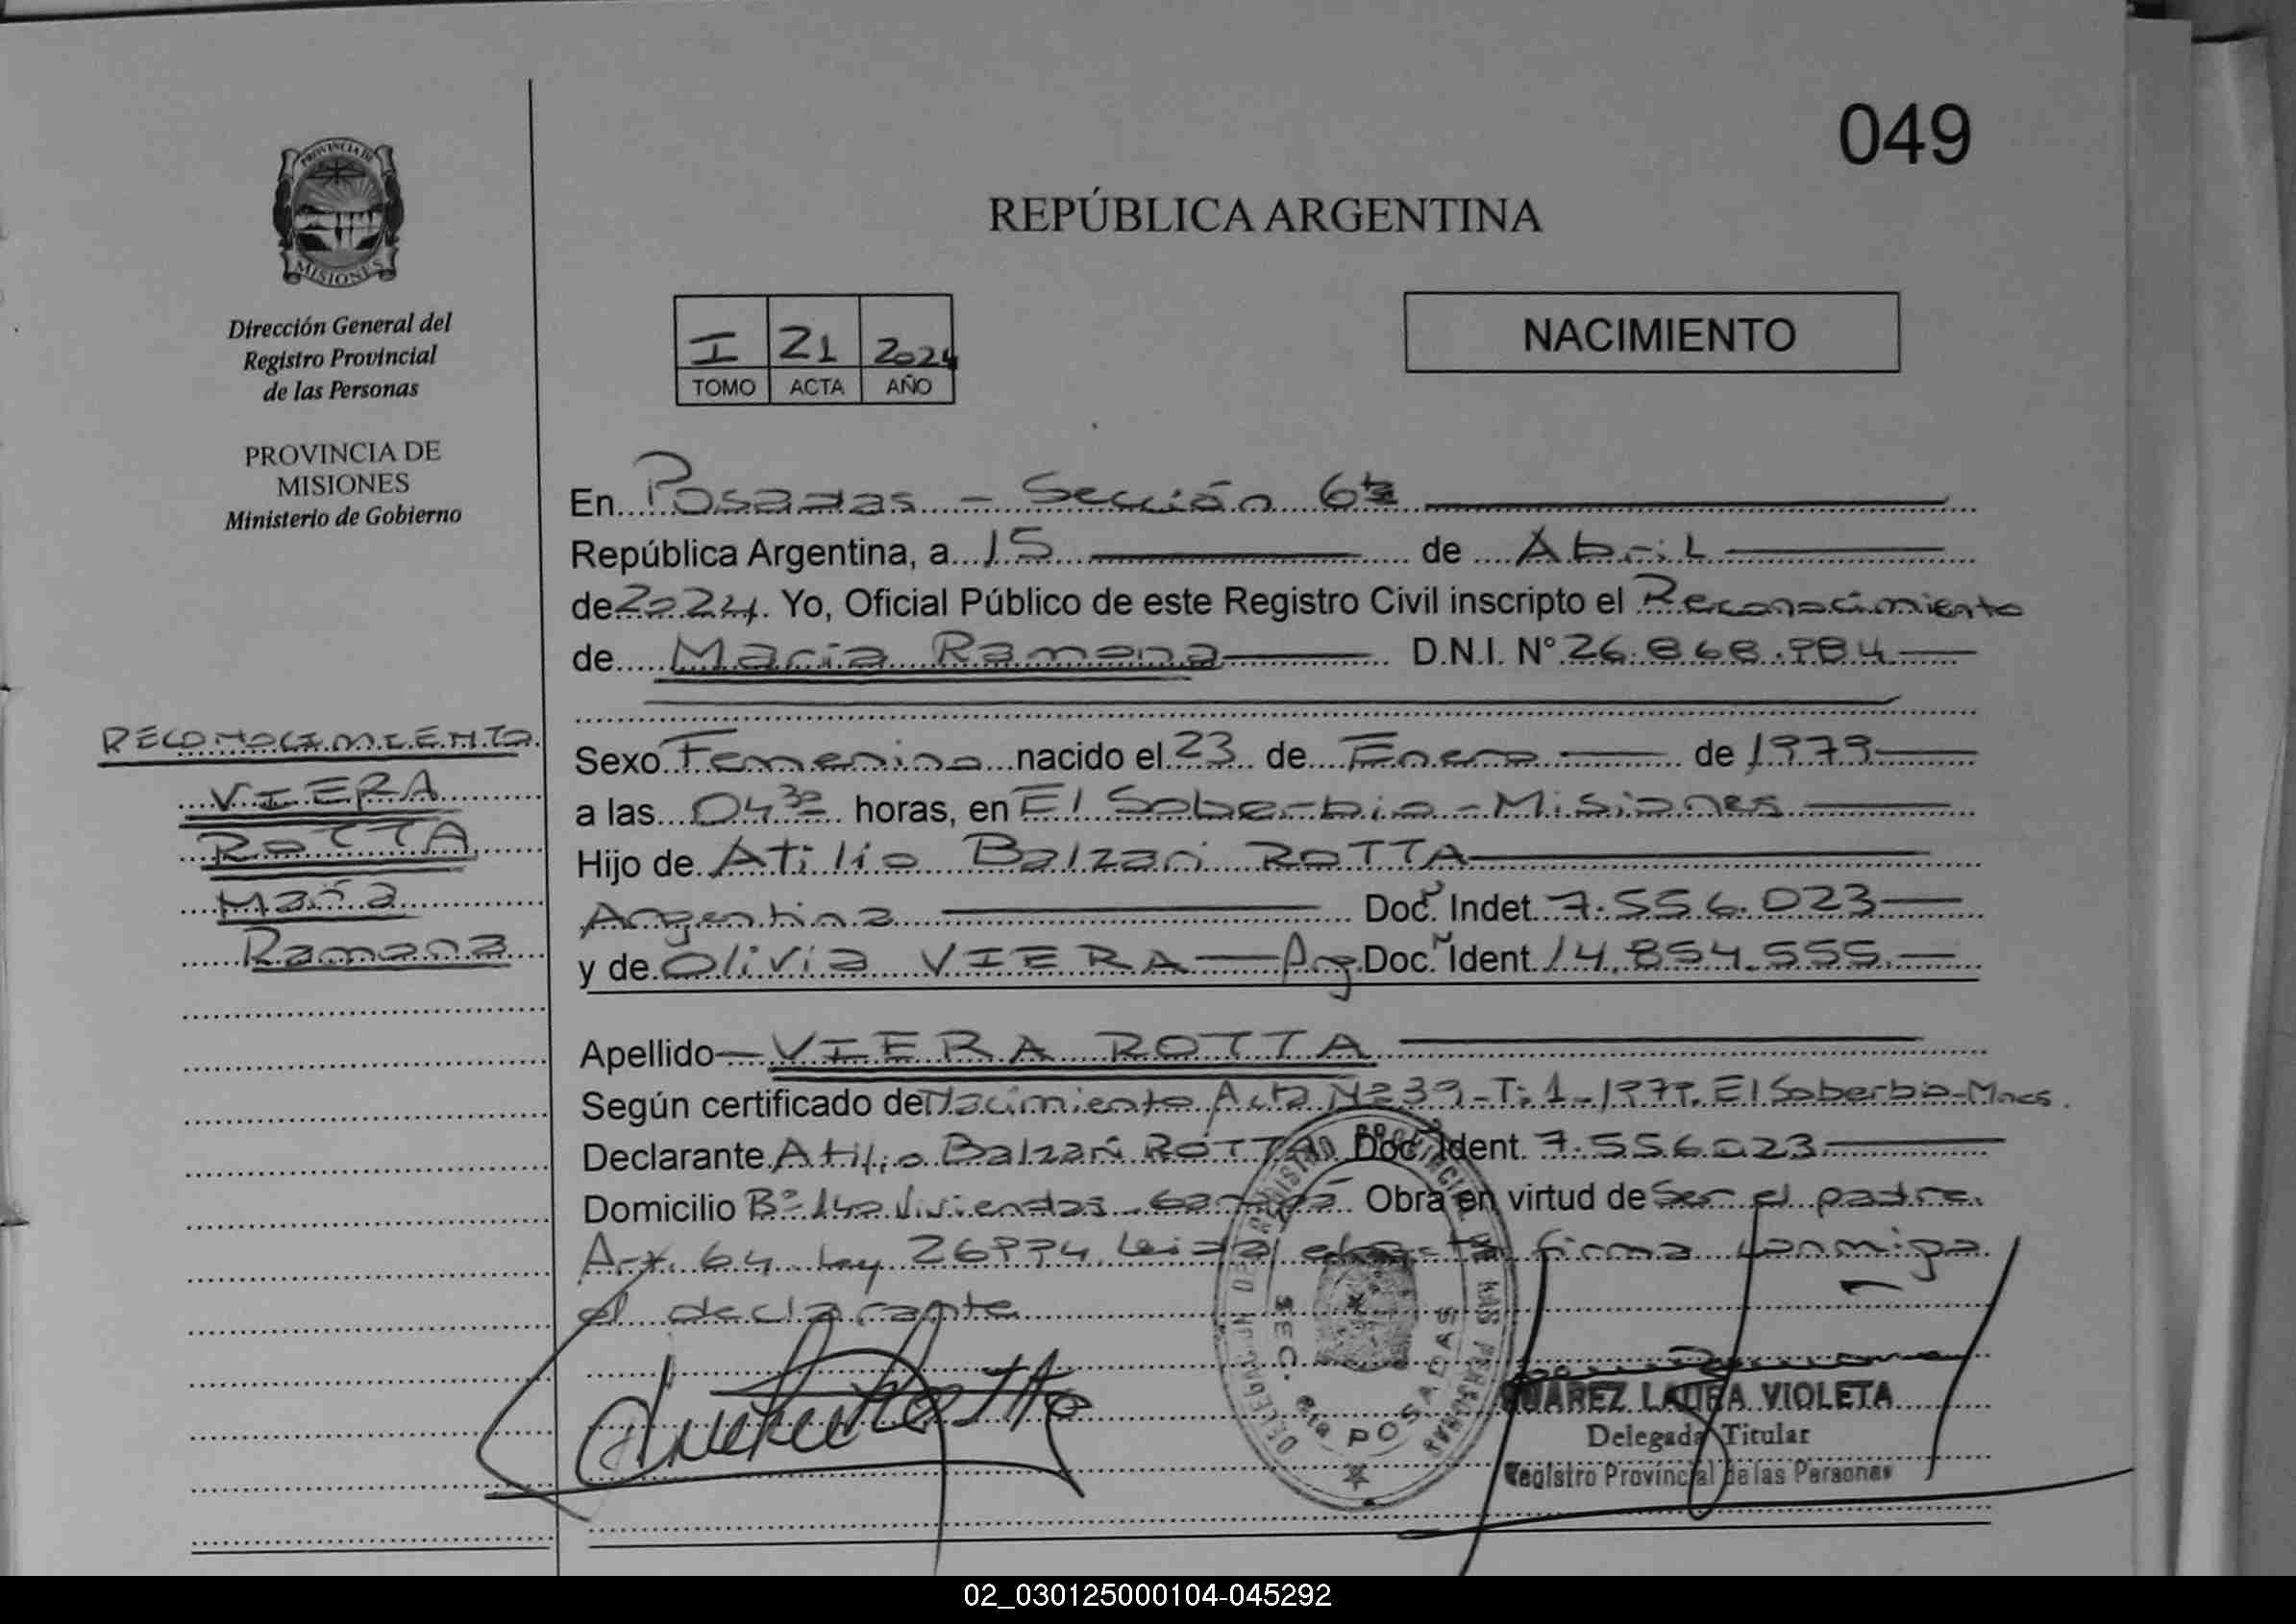 049
PROVINCIA DE
MISIONES
REPÚBLICA ARGENTINA
Dirección General del
Registro Provincial
de las Personas
PROVINCIA DE
MISIONES
Ministerio de Gobierno
I 21 2024
TOMO ACTA AÑO
NACIMIENTO
En Posadas - Sección 6ta
República Argentina, a 15 de Abril
de 2024. Yo, Oficial Público de este Registro Civil inscripto el Reconocimiento
de María Ramona D.N.I. N° 26.868.984
RECONOCIMIENTO
VIERA
ROTTA
María
Ramona
Sexo Femenino nacido el 23 de Enero de 1979
a las 04³⁰ horas, en El Soberbio - Misiones
Hijo de Atilio Balzari ROTTA
Argentina Doc. Indet. 7.556.023
y de Olivia VIERA Arg Doc. Ident. 14.854.555
Apellido VIERA ROTTA
Según certificado de Nacimiento Acta N° 39 - T: 1 - 1979. El Soberbio - Mnes.
Declarante Atilio Balzari ROTTA Doc. Ident. 7.556.023
Domicilio B° 140 Viviendas Obra en virtud de Ser el padre.
Art. 64 Ley 26994. Leida el acta firma conmigo
el declarante
DELEGACION DEL REGISTRO PROVINCIAL DE LAS PERSONAS
SEC. 6ta POSADAS
SUAREZ LAURA VIOLETA
Delegada Titular
Registro Provincial de las Personas
02_030125000104-045292